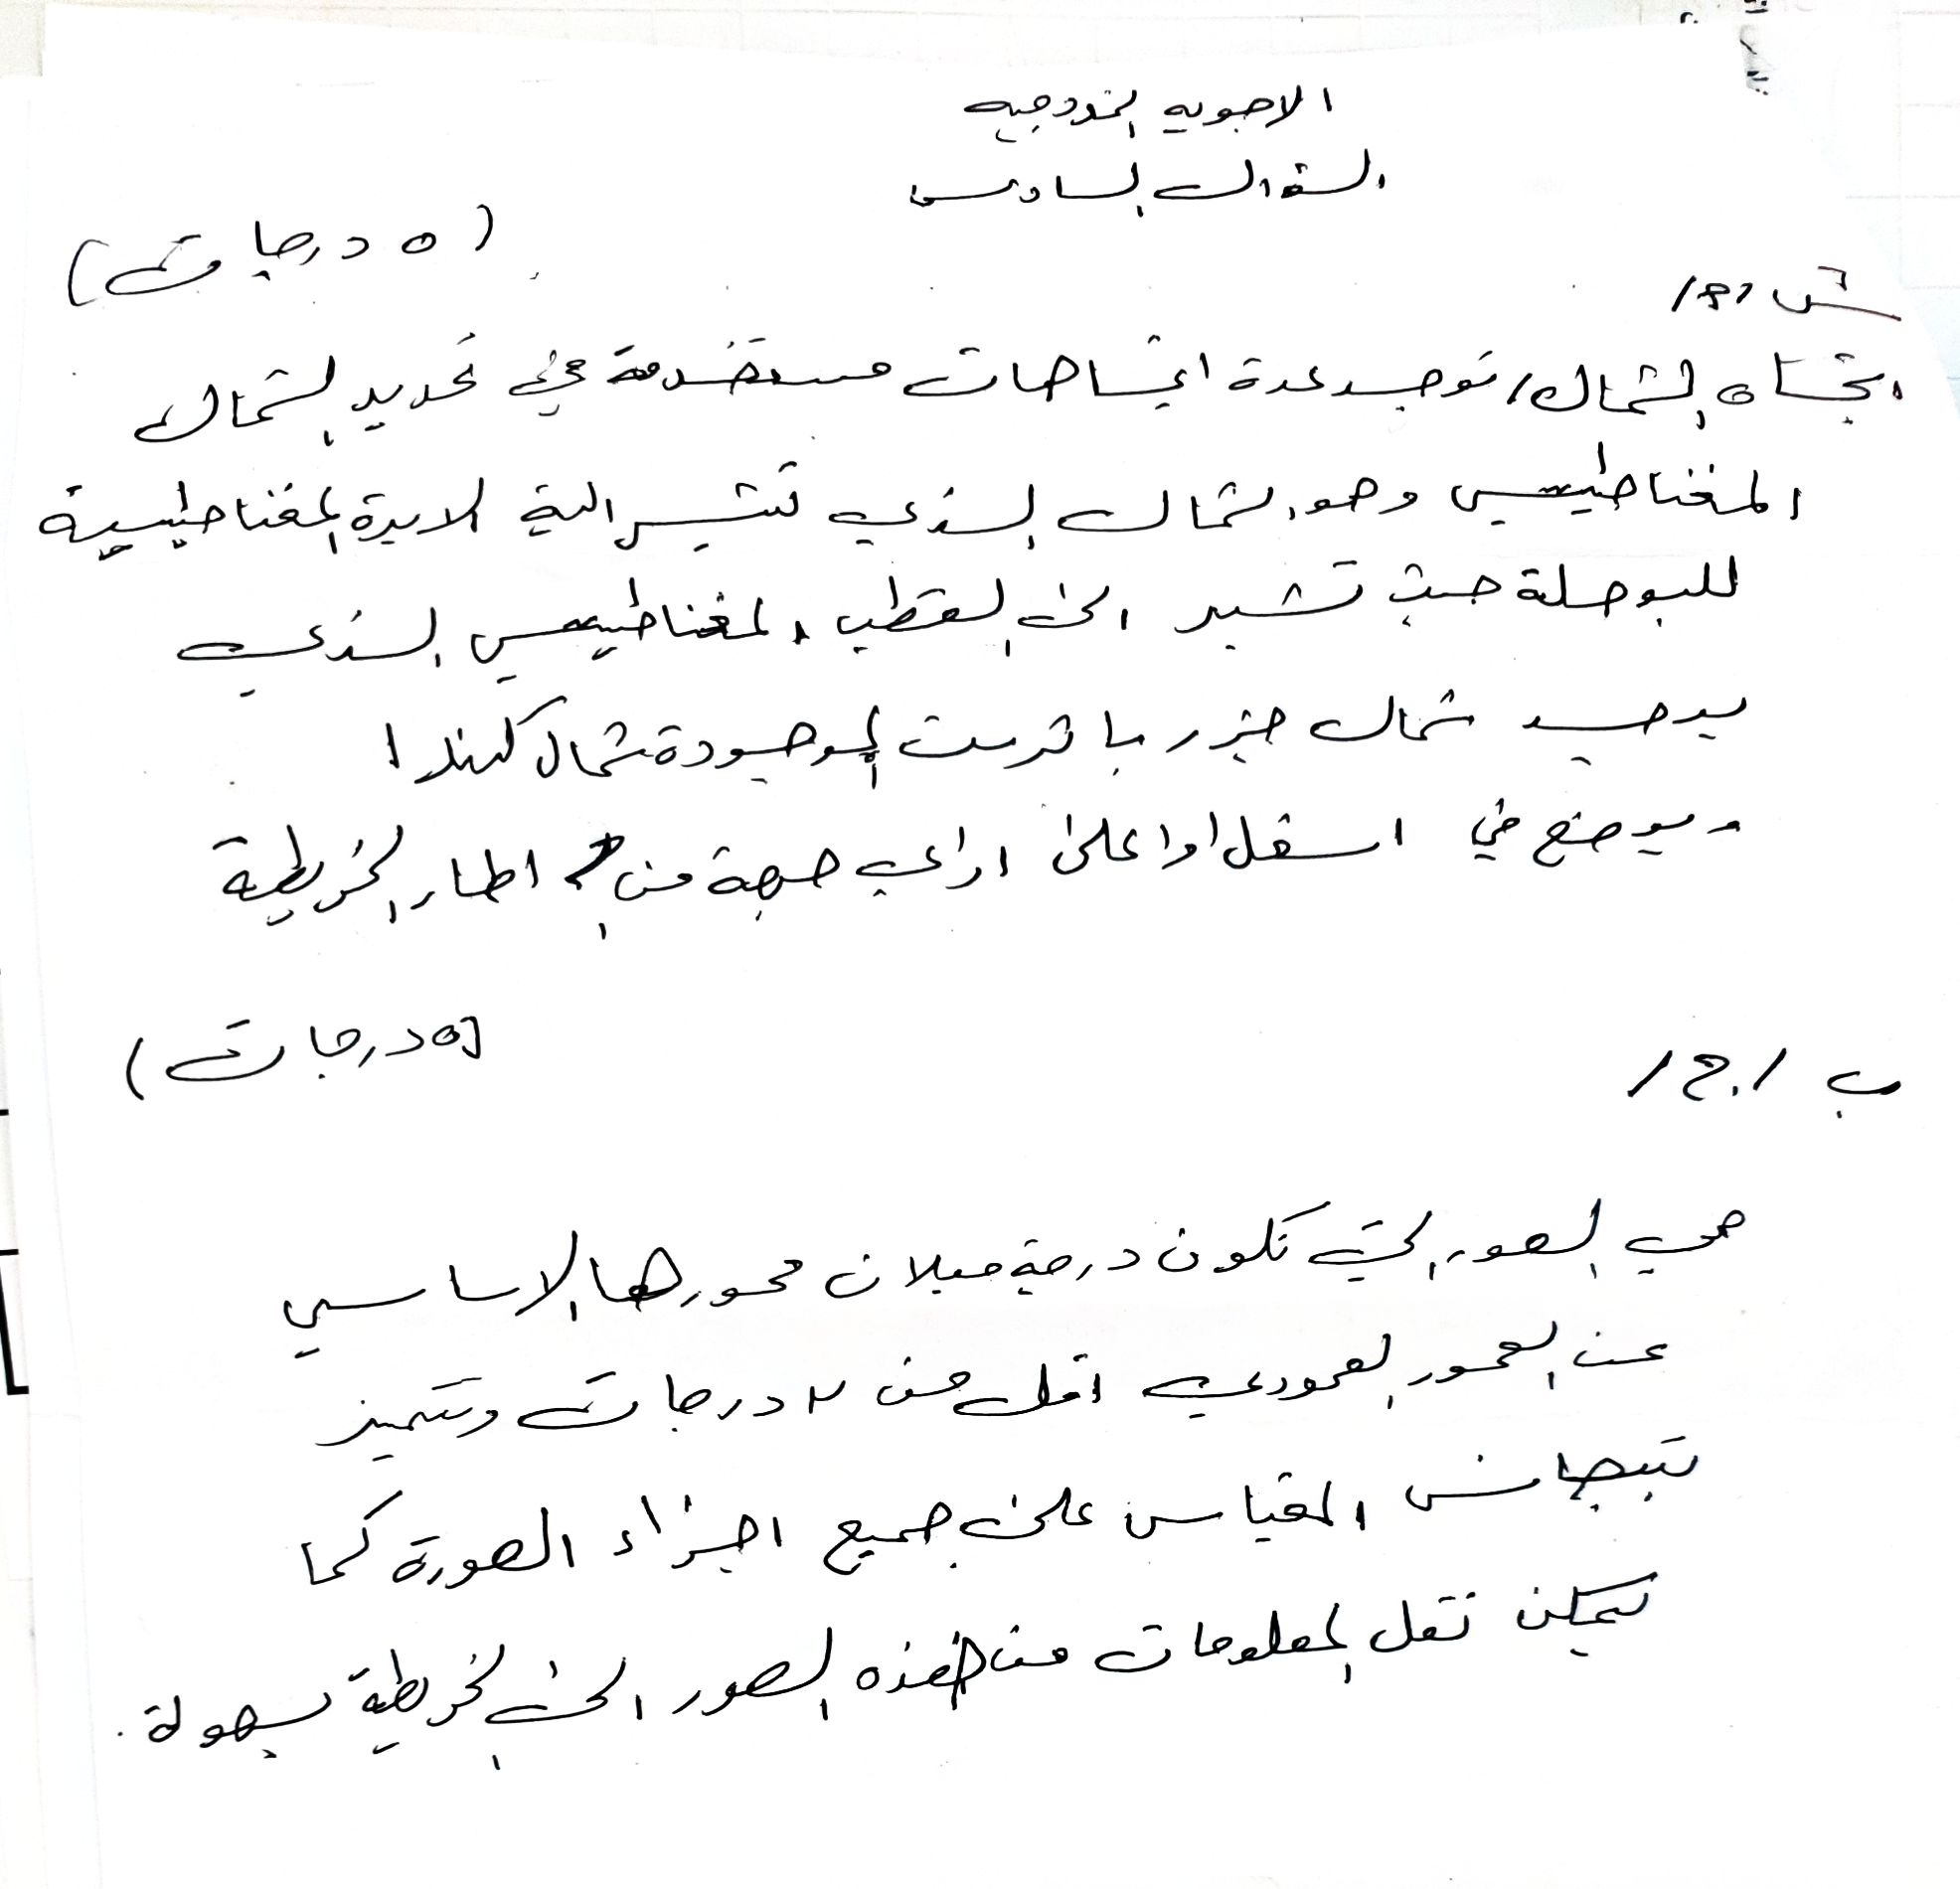 الاجوبه النموذجيه
السؤال السادس
(٥ درجات)
اتجاه الشمال / توجد عدة اتجاهات مستخدمة في تحديد الشمال
المغناطيسي وهو الشمال الذي تشير الية الابرة المغناطيسية
للبوصلة حيث تشير الى القطب المغناطيسي الذي
يوجد شمال جزر باثرست الموجودة شمال كندا
ويوضع في اسفل او اعلى او اي جهة من اطار الخريطة
(٥ درجات)
ب / ج /
هي الصور التي تكون درجة ميلان محورها الاساسي
عن المحور العمودي اقل من ٣ درجات وتتميز
بتجانس المقياس على جميع اجزاء الصورة كما
يمكن نقل المعلومات من هذه الصور الى الخريطة بسهولة .